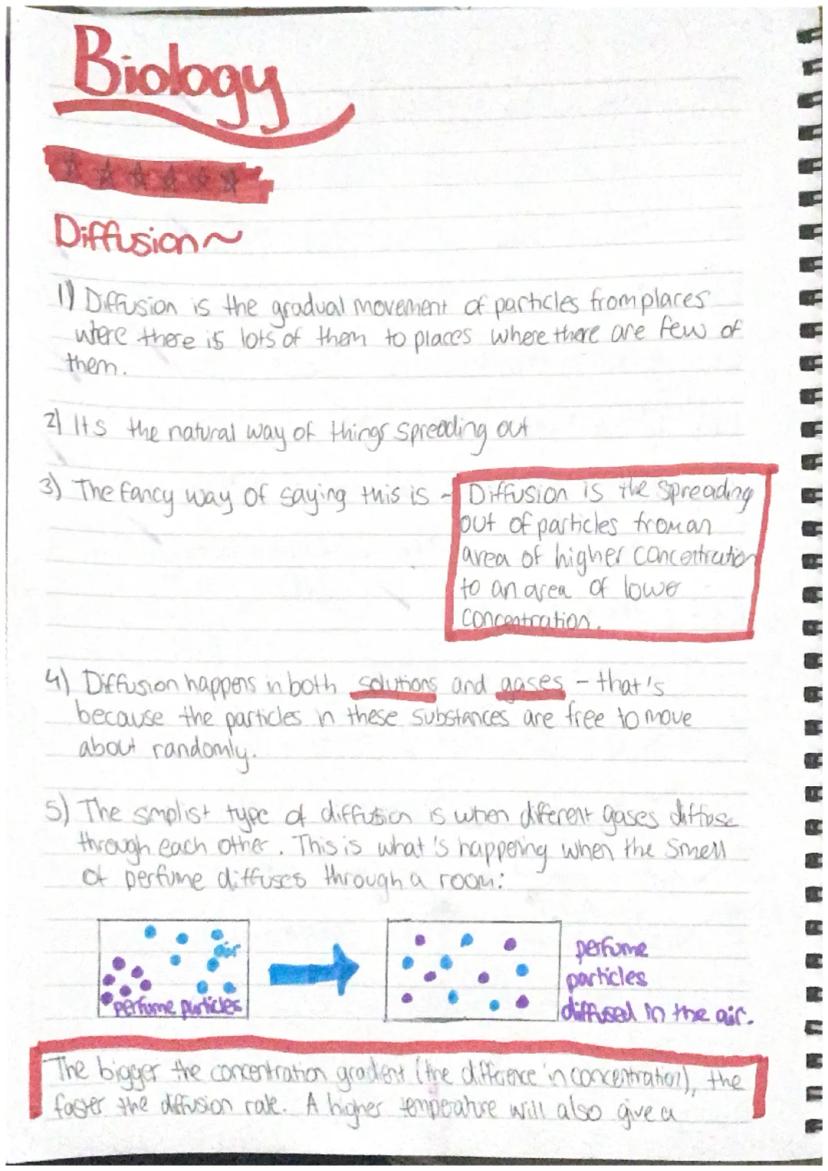 Biology
Diffusion~
1) Diffusion is the gradual movement of particles from places
where there is lots of them to places where there are few of
them.
2) Its the natural way of things spreading out
3) The fancy way of saying this is ~ Diffusion is the spreading
out of particles from an
area of higher concentration
to an area of lower
concentration.
4) Diffusion happens in both solutions and gases – that's
because the particles in these substances are free to move
about randomly.
5) The simplist type of diffusion is when different gases diffuse
through each other. This is what's happening when the smell
of perfume diffuses through a room:
air
perfume particles
perfume
particles
diffused in the air.
The bigger the concentration gradient (the difference in concentration), the
faster the diffusion rate. A higher temperature will also give a